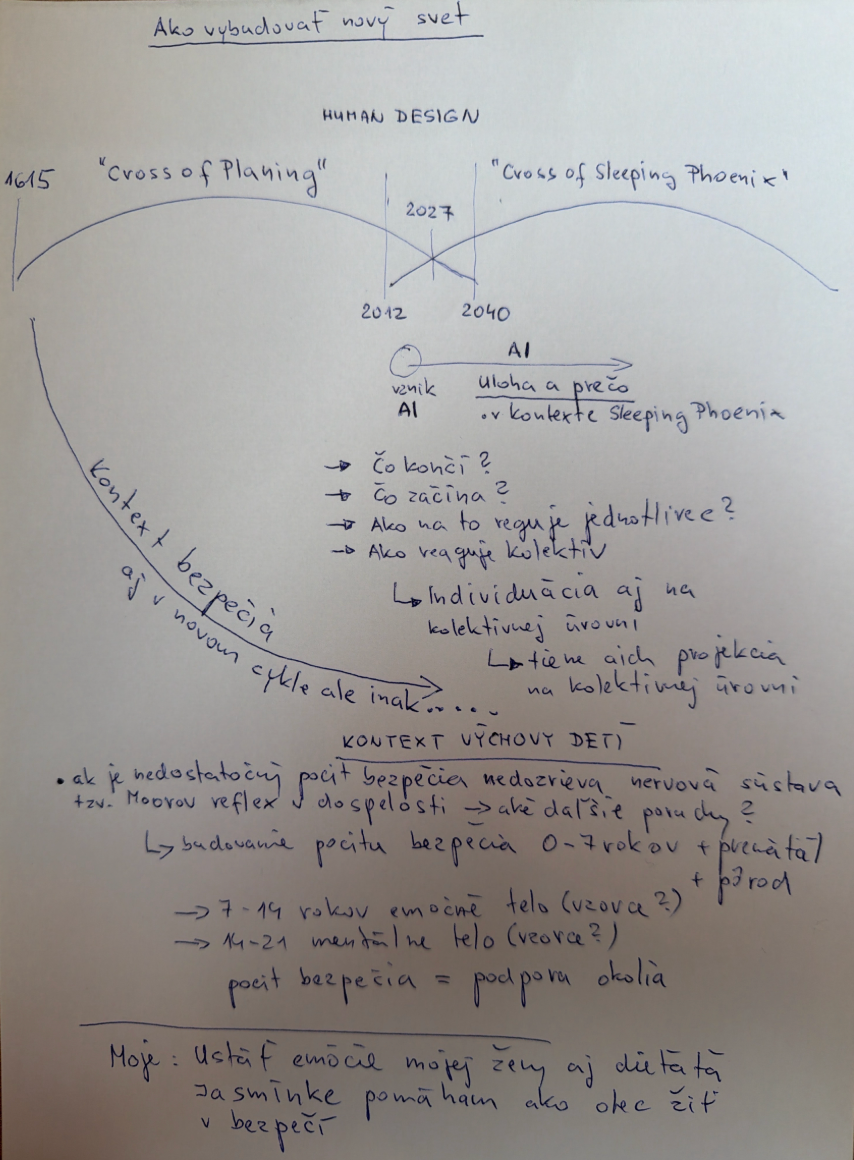 Ako vybudovať nový svet
HUMAN DESIGN
1615
"Cross of Planing"
"Cross of Sleeping Phoenix"
2027
2012
2040
AI
vznik
AI
Uloha a prečo
v kontexte Sleeping Phoenix
→ Čo končí?
→ Čo začína?
→ Ako na to reguje jednotlivec?
→ Ako reaguje kolektív
↳ Individuácia aj na
kolektívnej úrovni
↳ tiene a ich projekcia
na kolektívnej úrovni
Kontext bezpečia
aj v novom cykle ale inak.....
KONTEXT VÝCHOVY DETÍ
• ak je nedostatočný pocit bezpečia nedozrieva nervová sústava
tzv. Moorov reflex v dospelosti → aké ďalšie poruchy?
↳ budovanie pocitu bezpečia 0-7 rokov + prenatál
+ pôrod
→ 7-14 rokov emočné telo (vzorce?)
→ 14-21 mentálne telo (vzorce?)
pocit bezpečia = podpora okolia
Moje: Ustáť emócie mojej ženy aj dieťaťa
Jasmínke pomáham ako otec žiť
v bezpečí